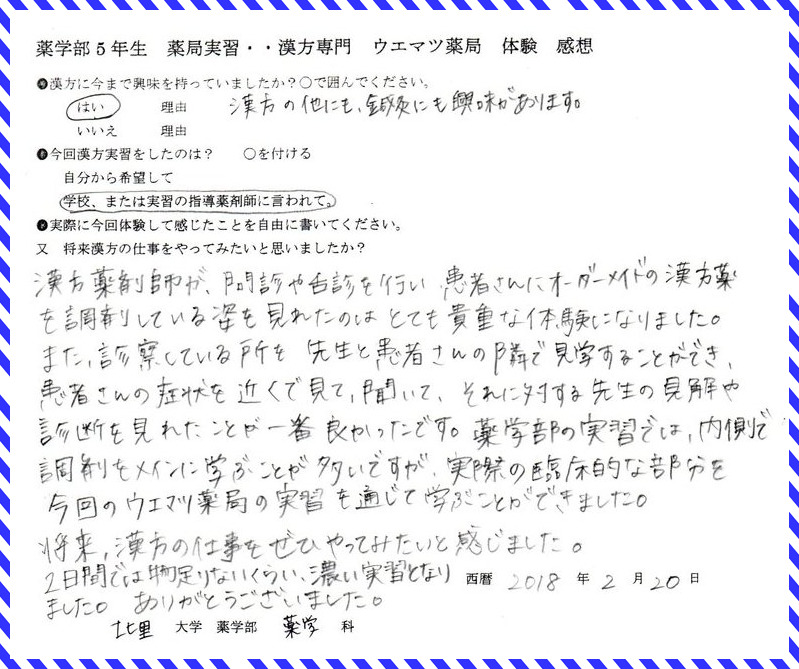 薬学部5年生　薬局実習・・漢方専門　ウエマツ薬局　体験　感想
●漢方に今まで興味を持っていましたか？○で囲んでください。
はい　理由　漢方の他にも、鍼灸にも興味があります。
いいえ　理由
●今回漢方実習をしたのは？　○を付ける
自分から希望して
学校、または実習の指導薬剤師に言われて。
●実際に今回体験して感じたことを自由に書いてください。
又　将来漢方の仕事をやってみたいと思いましたか？
漢方薬剤師が、問診や舌診を行い 患者さんにオーダーメイドの漢方薬
を調剤している姿を見れたのは とても貴重な体験になりました。
また、診察している所を 先生と患者さんの隣で見学することができ、
患者さんの症状を近くで見て、聞いて、それに対する先生の見解や
診断を見れたことが一番良かったです。薬学部の実習では、内側で
調剤をメインに学ぶことが多いですが、実際の臨床的な部分を
今回のウエマツ薬局の実習を通じて学ぶことができました。
将来、漢方の仕事をぜひやってみたいと感じました。
2日間では物足りないくらい、濃い実習となり
ました。 ありがとうございました。
西暦 2018 年 2 月 20 日
北里 大学　薬学部　薬学 科